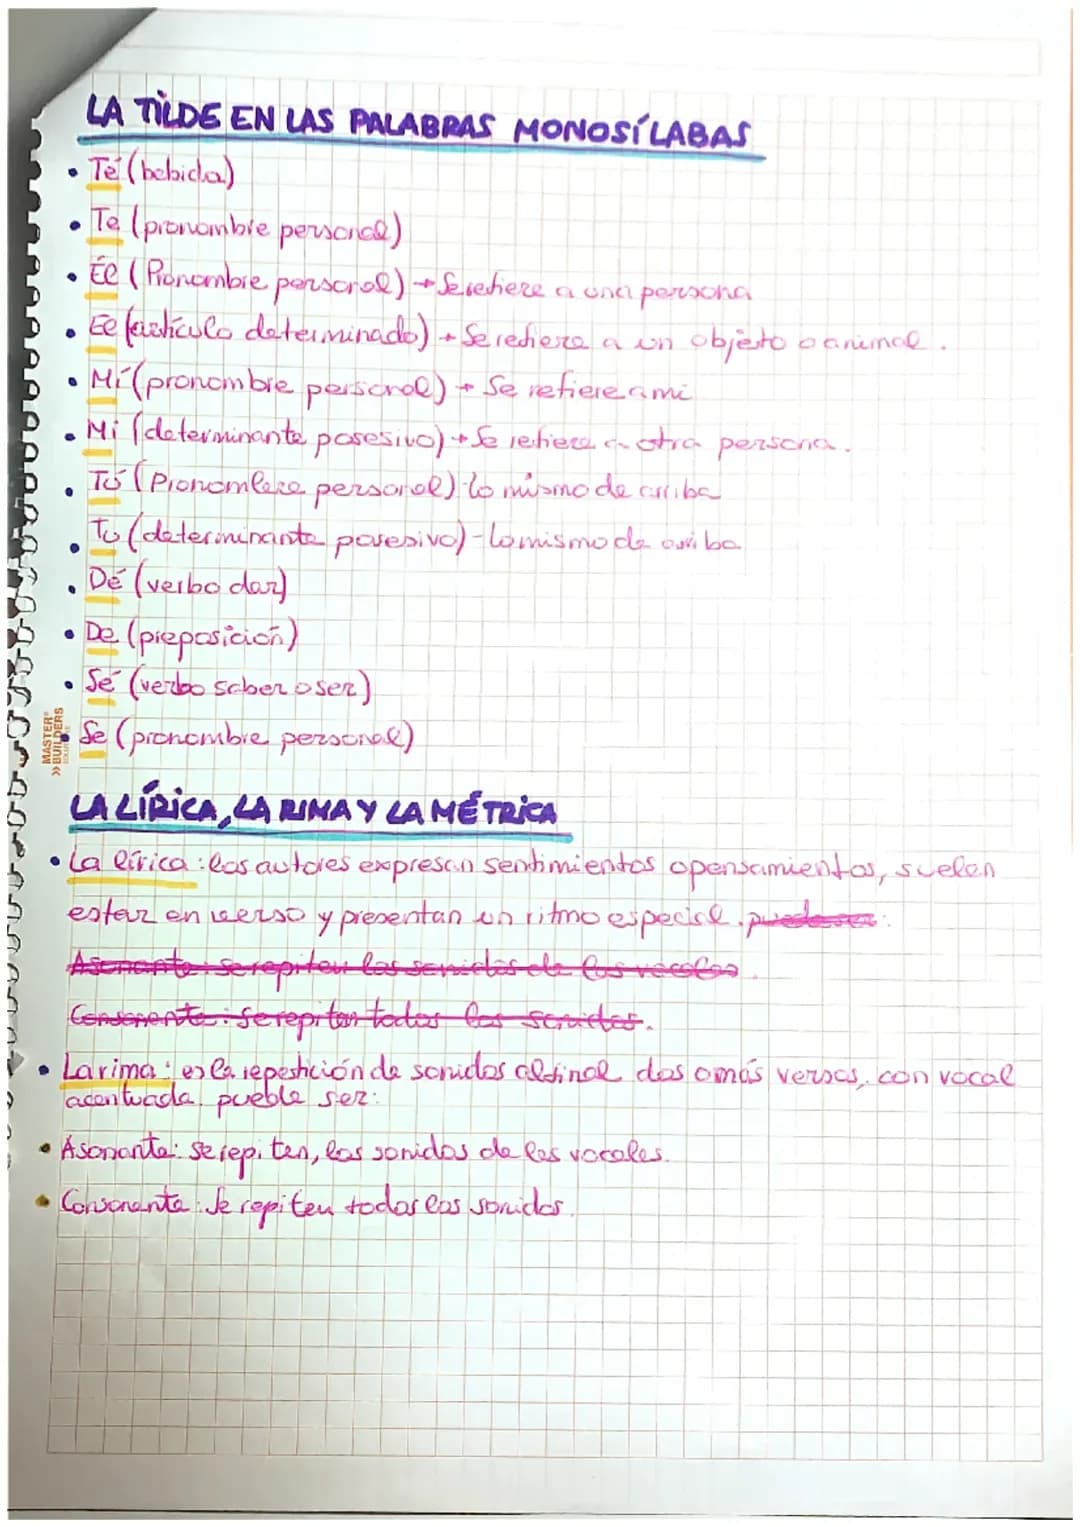 LA TILDE EN LAS PALABRAS MONOSÍLABAS
• Té (bebida)
• Te (pronombre personal)
• Él (Pronombre personal) → Se refiere a una persona
• El (artículo determinado) → Se refiere a un objeto o animal.
• Mí (pronombre personal) → Se refiere a mi
• Mi (determinante posesivo) → Se refiere a otra persona.
• Tú (Pronombre personal) - lo mismo de arriba
• Tu (determinante posesivo) - lo mismo de arriba
• Dé (verbo dar)
• De (preposición)
• Sé (verbo saber o ser)
• Se (pronombre personal)
MASTER®
»BUILDERS
SOLUTIONS
LA LÍRICA, LA RIMA Y LA MÉTRICA
• La lírica: los autores expresan sentimientos o pensamientos, suelen
estar en verso y presentan un ritmo especial. puede ser:
Asonante: se repiten los sonidos de las vocales.
Consonante: se repiten todos los sonidos.
• La rima: es la repetición de sonidos al final dos o más versos, con vocal
acentuada. pueble ser:
• Asonante: Se repiten, los sonidos de las vocales.
• Consonante: Se repiten todos los sonidos.